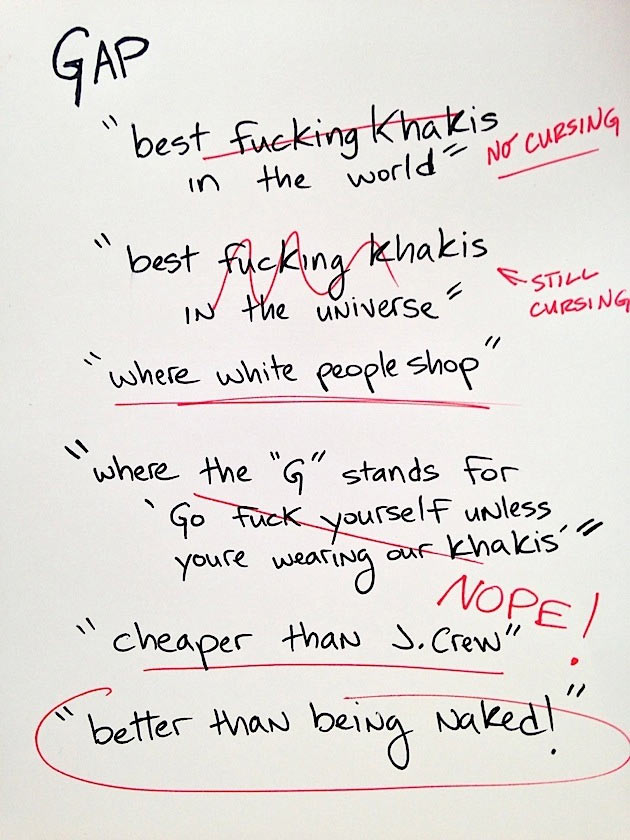 GAP
"best fucking Khakis
in the world"
NO CURSING
"best fucking khakis
IN the UNIverse"
STILL
CURSING
"where white people shop"
"where the "G" stands for
'Go fuck yourself UNless
youre wearing our khakis'"
NOPE!
"cheaper thaN J. Crew"
"better thaN being Naked!"